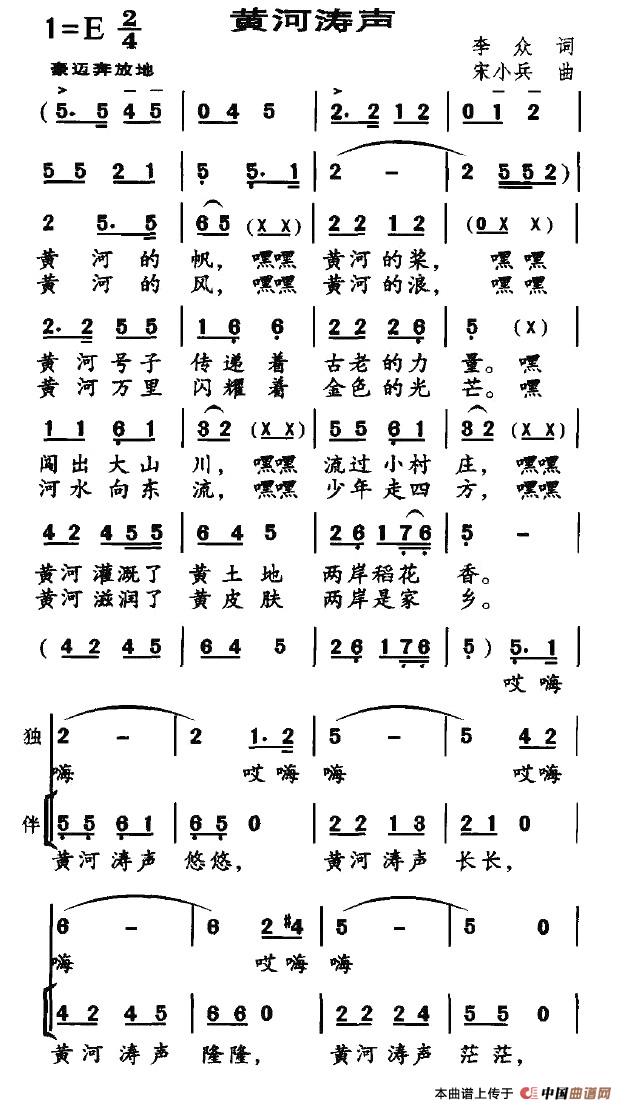 黄河涛声
1=E 2/4
李众 词
豪迈奔放地
宋小兵 曲
(5. 5 4 5 | 0 4 5 | 2. 2 1 2 | 0 1 2 |
5 5 2 1 | 5 5. 1 | 2 - | 2 5 5 2) |
2 5. 5 | 6 5 (X X) | 2 2 1 2 | (0 X X) |
黄 河的 帆, 嘿嘿 黄河的桨, 嘿嘿
黄 河的 风, 嘿嘿 黄河的浪, 嘿嘿
2. 2 5 5 | 1 6 6 | 2 2 2 6 | 5 (X) |
黄河号子 传递着 古老的力 量。嘿
黄河万里 闪耀着 金色的光 芒。嘿
1 1 6 1 | 3 2 (X X) | 5 5 6 1 | 3 2 (X X) |
闯出大山 川, 嘿嘿 流过小村 庄, 嘿嘿
河水向东 流, 嘿嘿 少年走四 方, 嘿嘿
4 2 4 5 5 | 6 4 5 | 2 6 1 7 6 | 5 - |
黄河灌溉了 黄土地 两岸稻花 香。
黄河滋润了 黄皮肤 两岸是家 乡。
(4 2 4 5 | 6 4 5 | 2 6 1 7 6 | 5) 5. 1 |
哎嗨
独 2 - | 2 1. 2 | 5 - | 5 4 2 |
嗨 哎嗨 嗨 哎嗨
伴 5 5 6 1 | 6 5 0 | 2 2 1 3 | 2 1 0 |
黄河涛声 悠悠, 黄河涛声 长长,
6 - | 6 2 #4 | 5 - | 5 0 |
嗨 哎嗨 嗨
4 2 4 5 | 6 6 0 | 2 2 4 2 | 5 5 0 |
黄河涛声 隆隆, 黄河涛声 茫茫,
本曲谱上传于 中国曲谱网